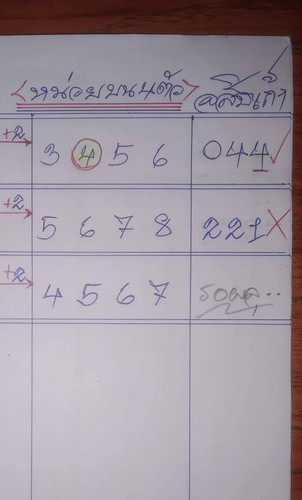 <หน่วยบน4ตัว>
+2 3 4 5 6 044 ✓
+2 5 6 7 8 221 ✗
+2 4 5 6 7 รอผล...